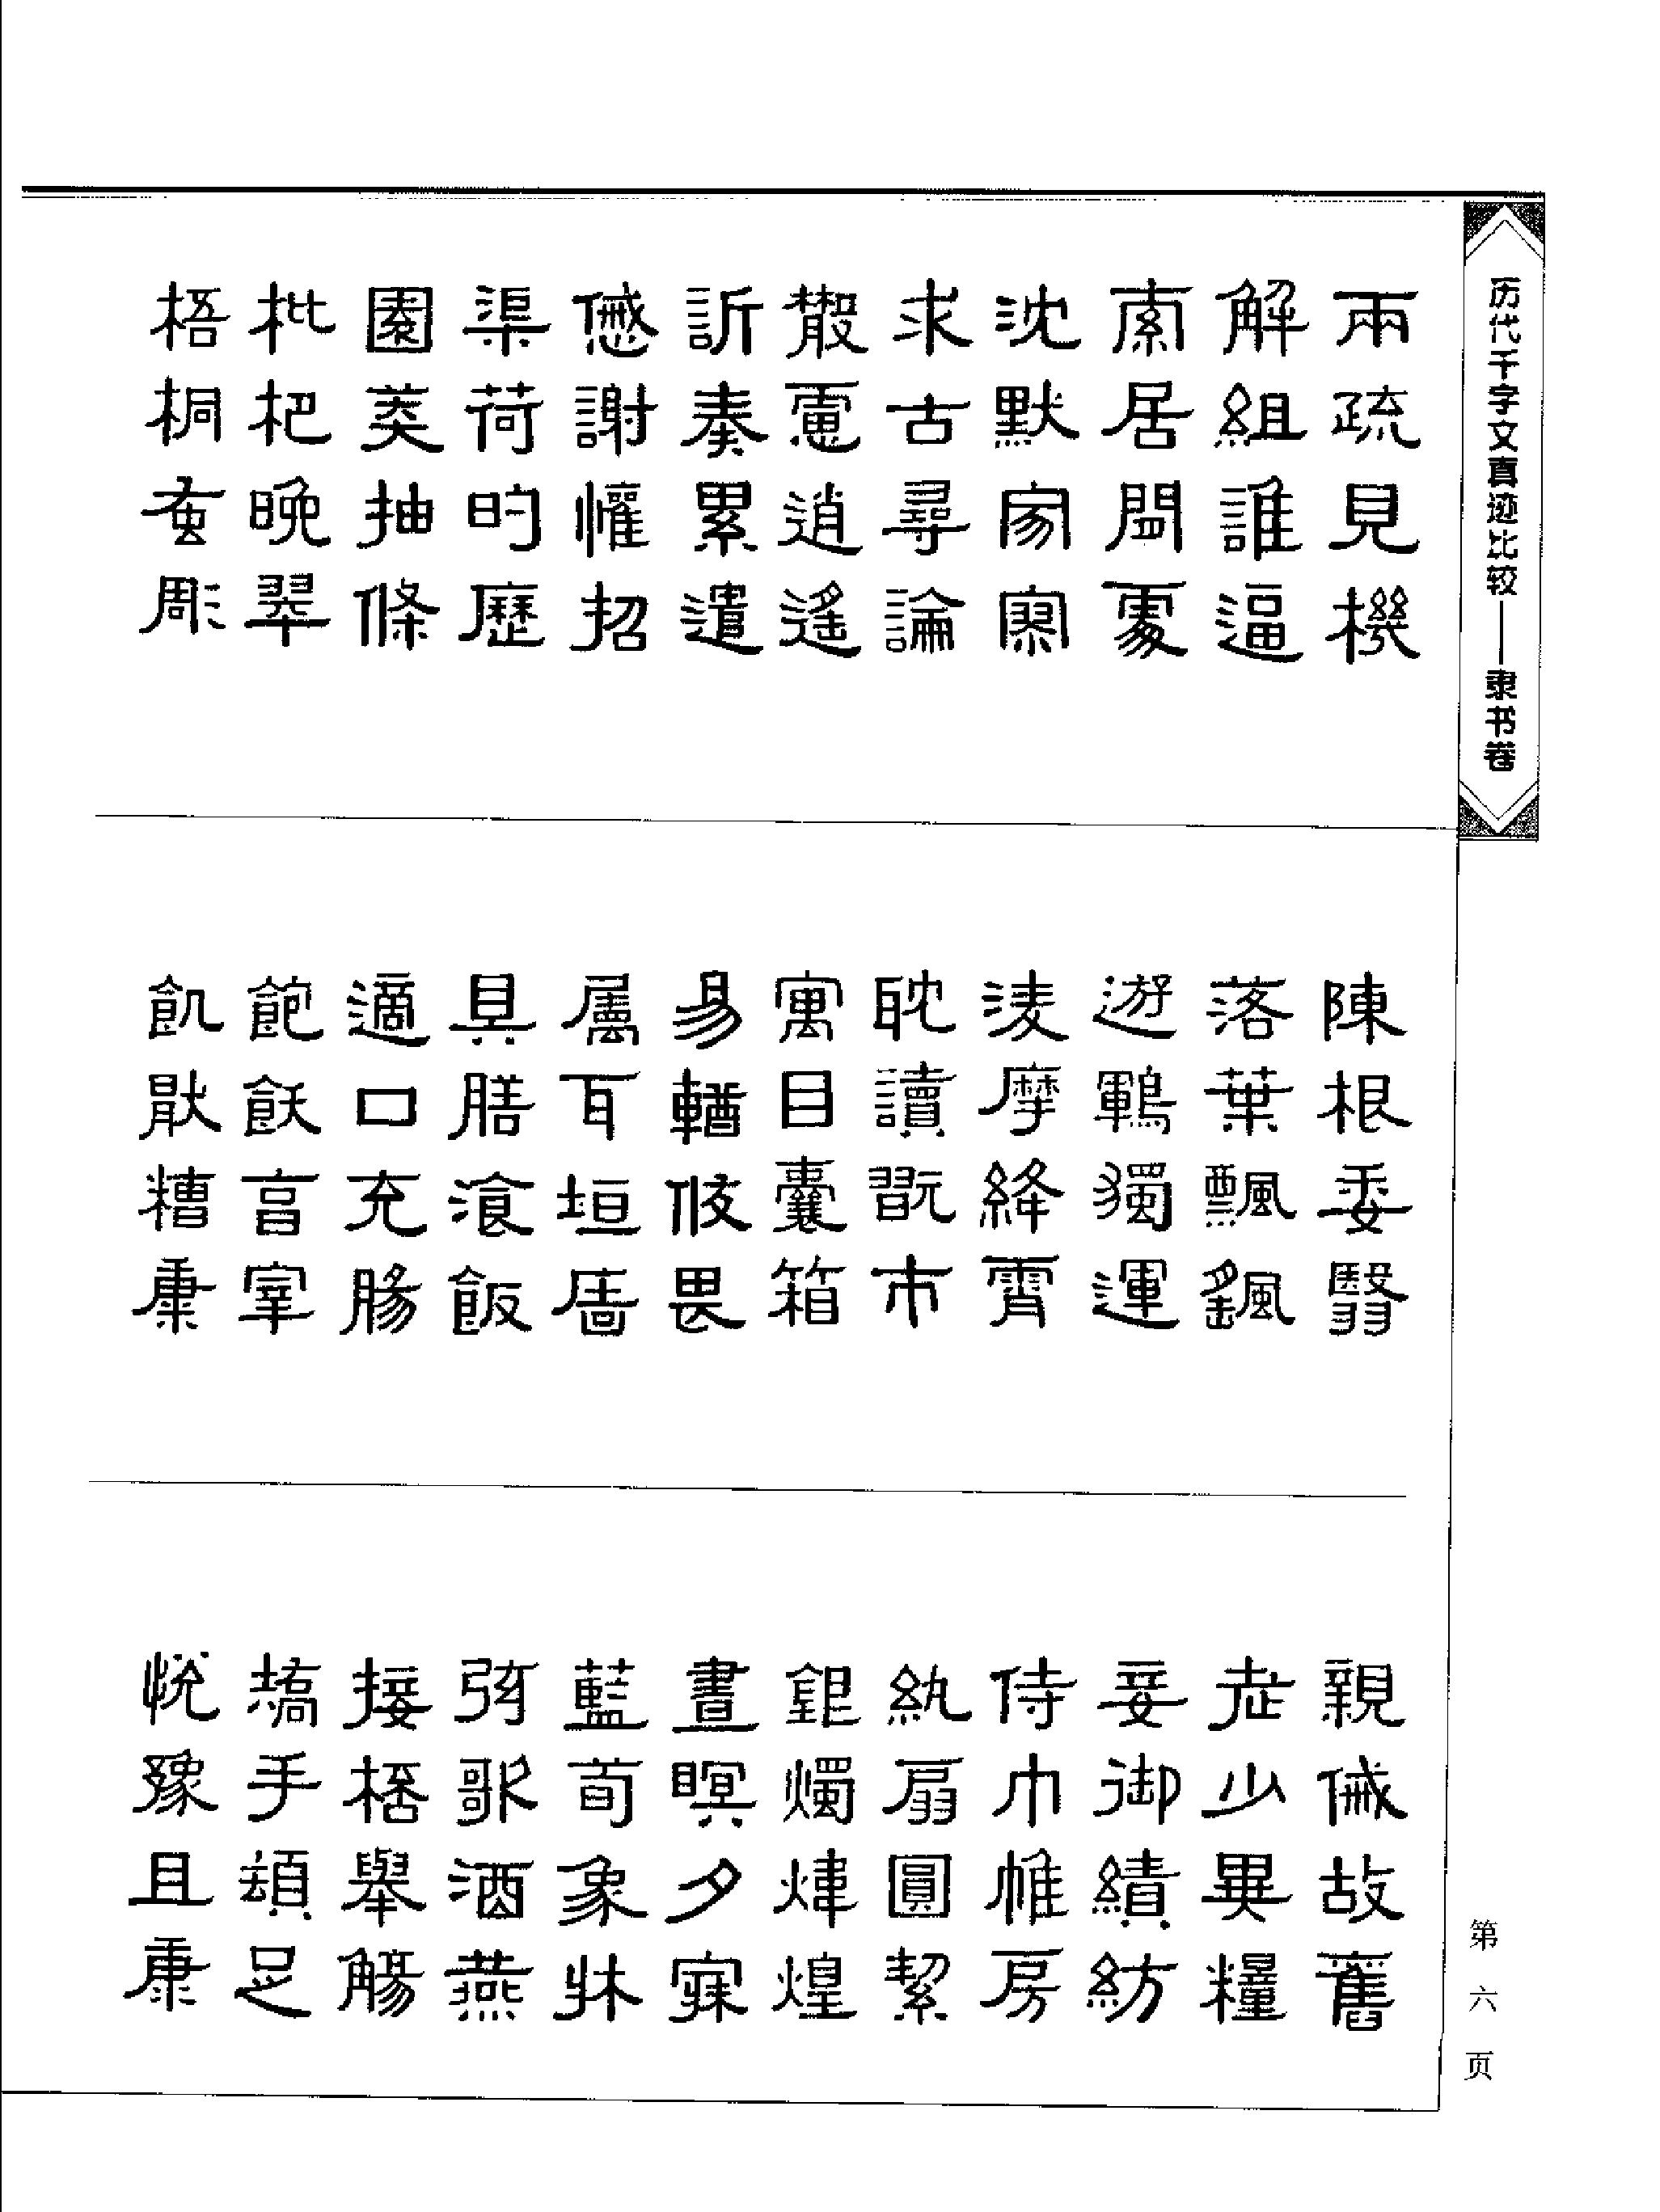 历代千字文真迹比较——隶书卷
兩疏見機
解組誰逼
索居閒處
沈默寂寥
求古尋論
散慮逍遙
訢奏累遣
慼謝懽招
渠荷的歷
園莽抽條
枇杷晚翠
梧桐蚤彫
陳根委翳
落葉飄颻
遊鵾獨運
淩摩絳霄
耽讀翫市
寓目囊箱
易輶攸畏
屬耳垣牆
具膳飡飯
適口充腸
飽飫享宰
飢猒糟糠
親戚故舊
老少異糧
妾御績紡
侍巾帷房
紈扇圓絜
銀燭煒煌
晝瞑夕寐
藍荀象牀
弦歌酒燕
接桮舉觴
撟手頓足
悅豫且康
第六页